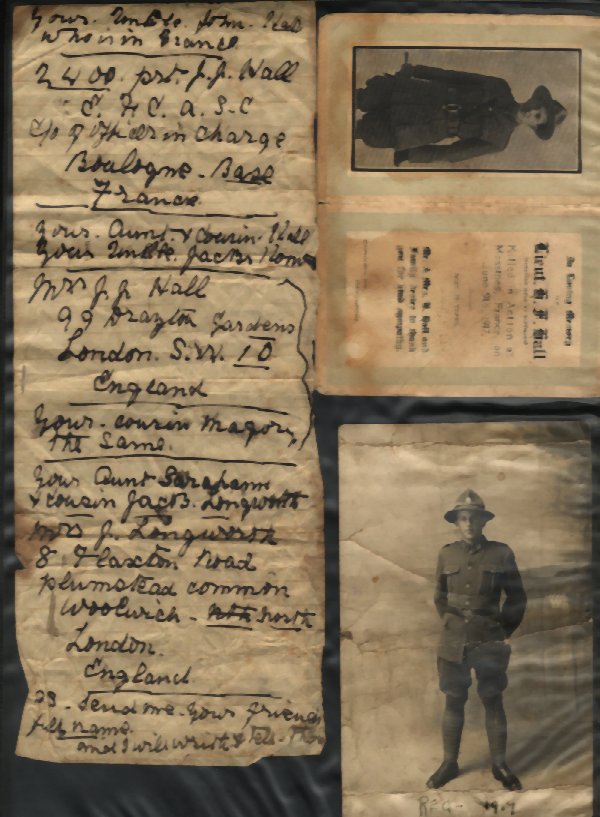 Your Uncle John Hall
who is in France
2400 prt. J. J. Hall
E. F. C. A. S. C
c/o officer in charge
Boulogne Base
France
Your Aunt & cousin Hall
Your Uncle Jack's Home
Mrs J. J. Hall
99 Drayton Gardens
London. S.W. 10
England
Your cousin
the Same.
Your Aunt Sarahann
& cousin Jacob Longworth
Mrs J. Longworth
8 Flaxton Road
plumstead common
Woolwich - North
London.
England
Send me your friends
full name
and I will
In Loving Memory
Lieut. H. F. Hall
Killed in Action at
Messines, France, on
June
Mr. & Mrs. H. Hall and
Family desire to thank
you for kind sympathy.